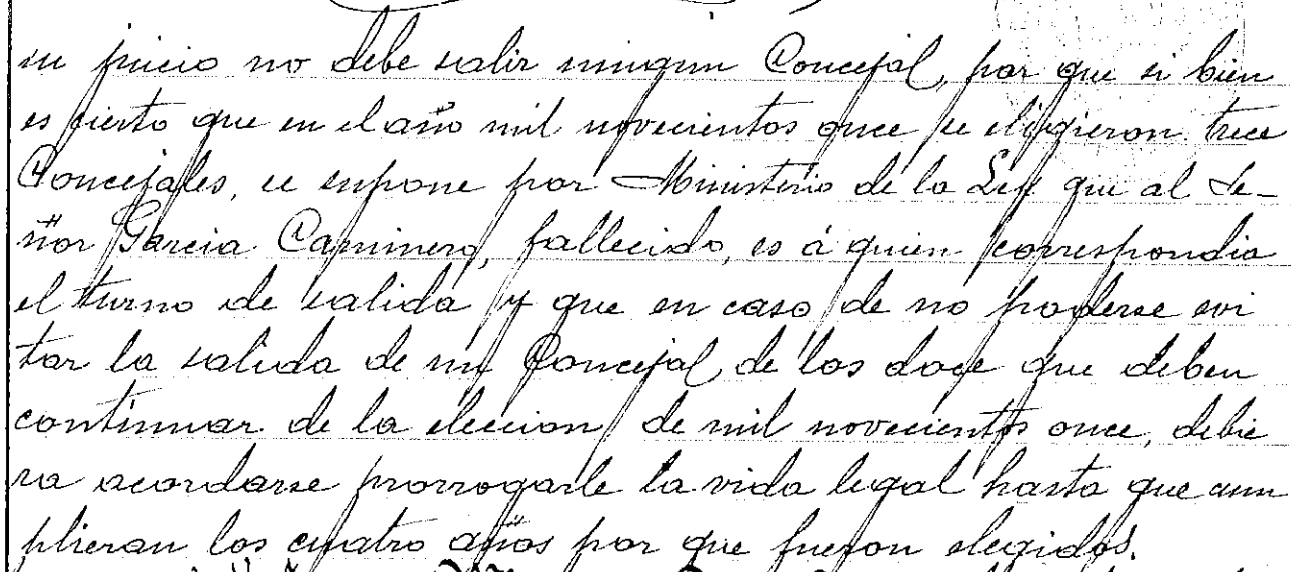 su juicio no debe salir ningun Concejal, por que si bien
es cierto que en el año mil novecientos once se eligieron trece
Concejales, se supone por Ministerio de la Ley que al Se-
ñor Garcia Caminero, fallecido, es á quien correspondia
el turno de salida y que en caso de no poderse evi
tar la salida de un Concejal de los doce que deben
continuar de la eleccion de mil novecientos once, debie
ra acordarse prorrogarle la vida legal hasta que cum
plieran los cuatro años por que fueron elegidos.